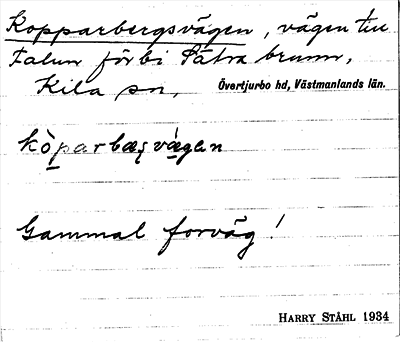 Kopparbergsvägen, vägen till
Falun förbi Sätra brunn,
Kila sn, Övertjurbo hd, Västmanlands län.
kòparbæʂvä́gen
Gammal forväg!
HARRY STÅHL 1934